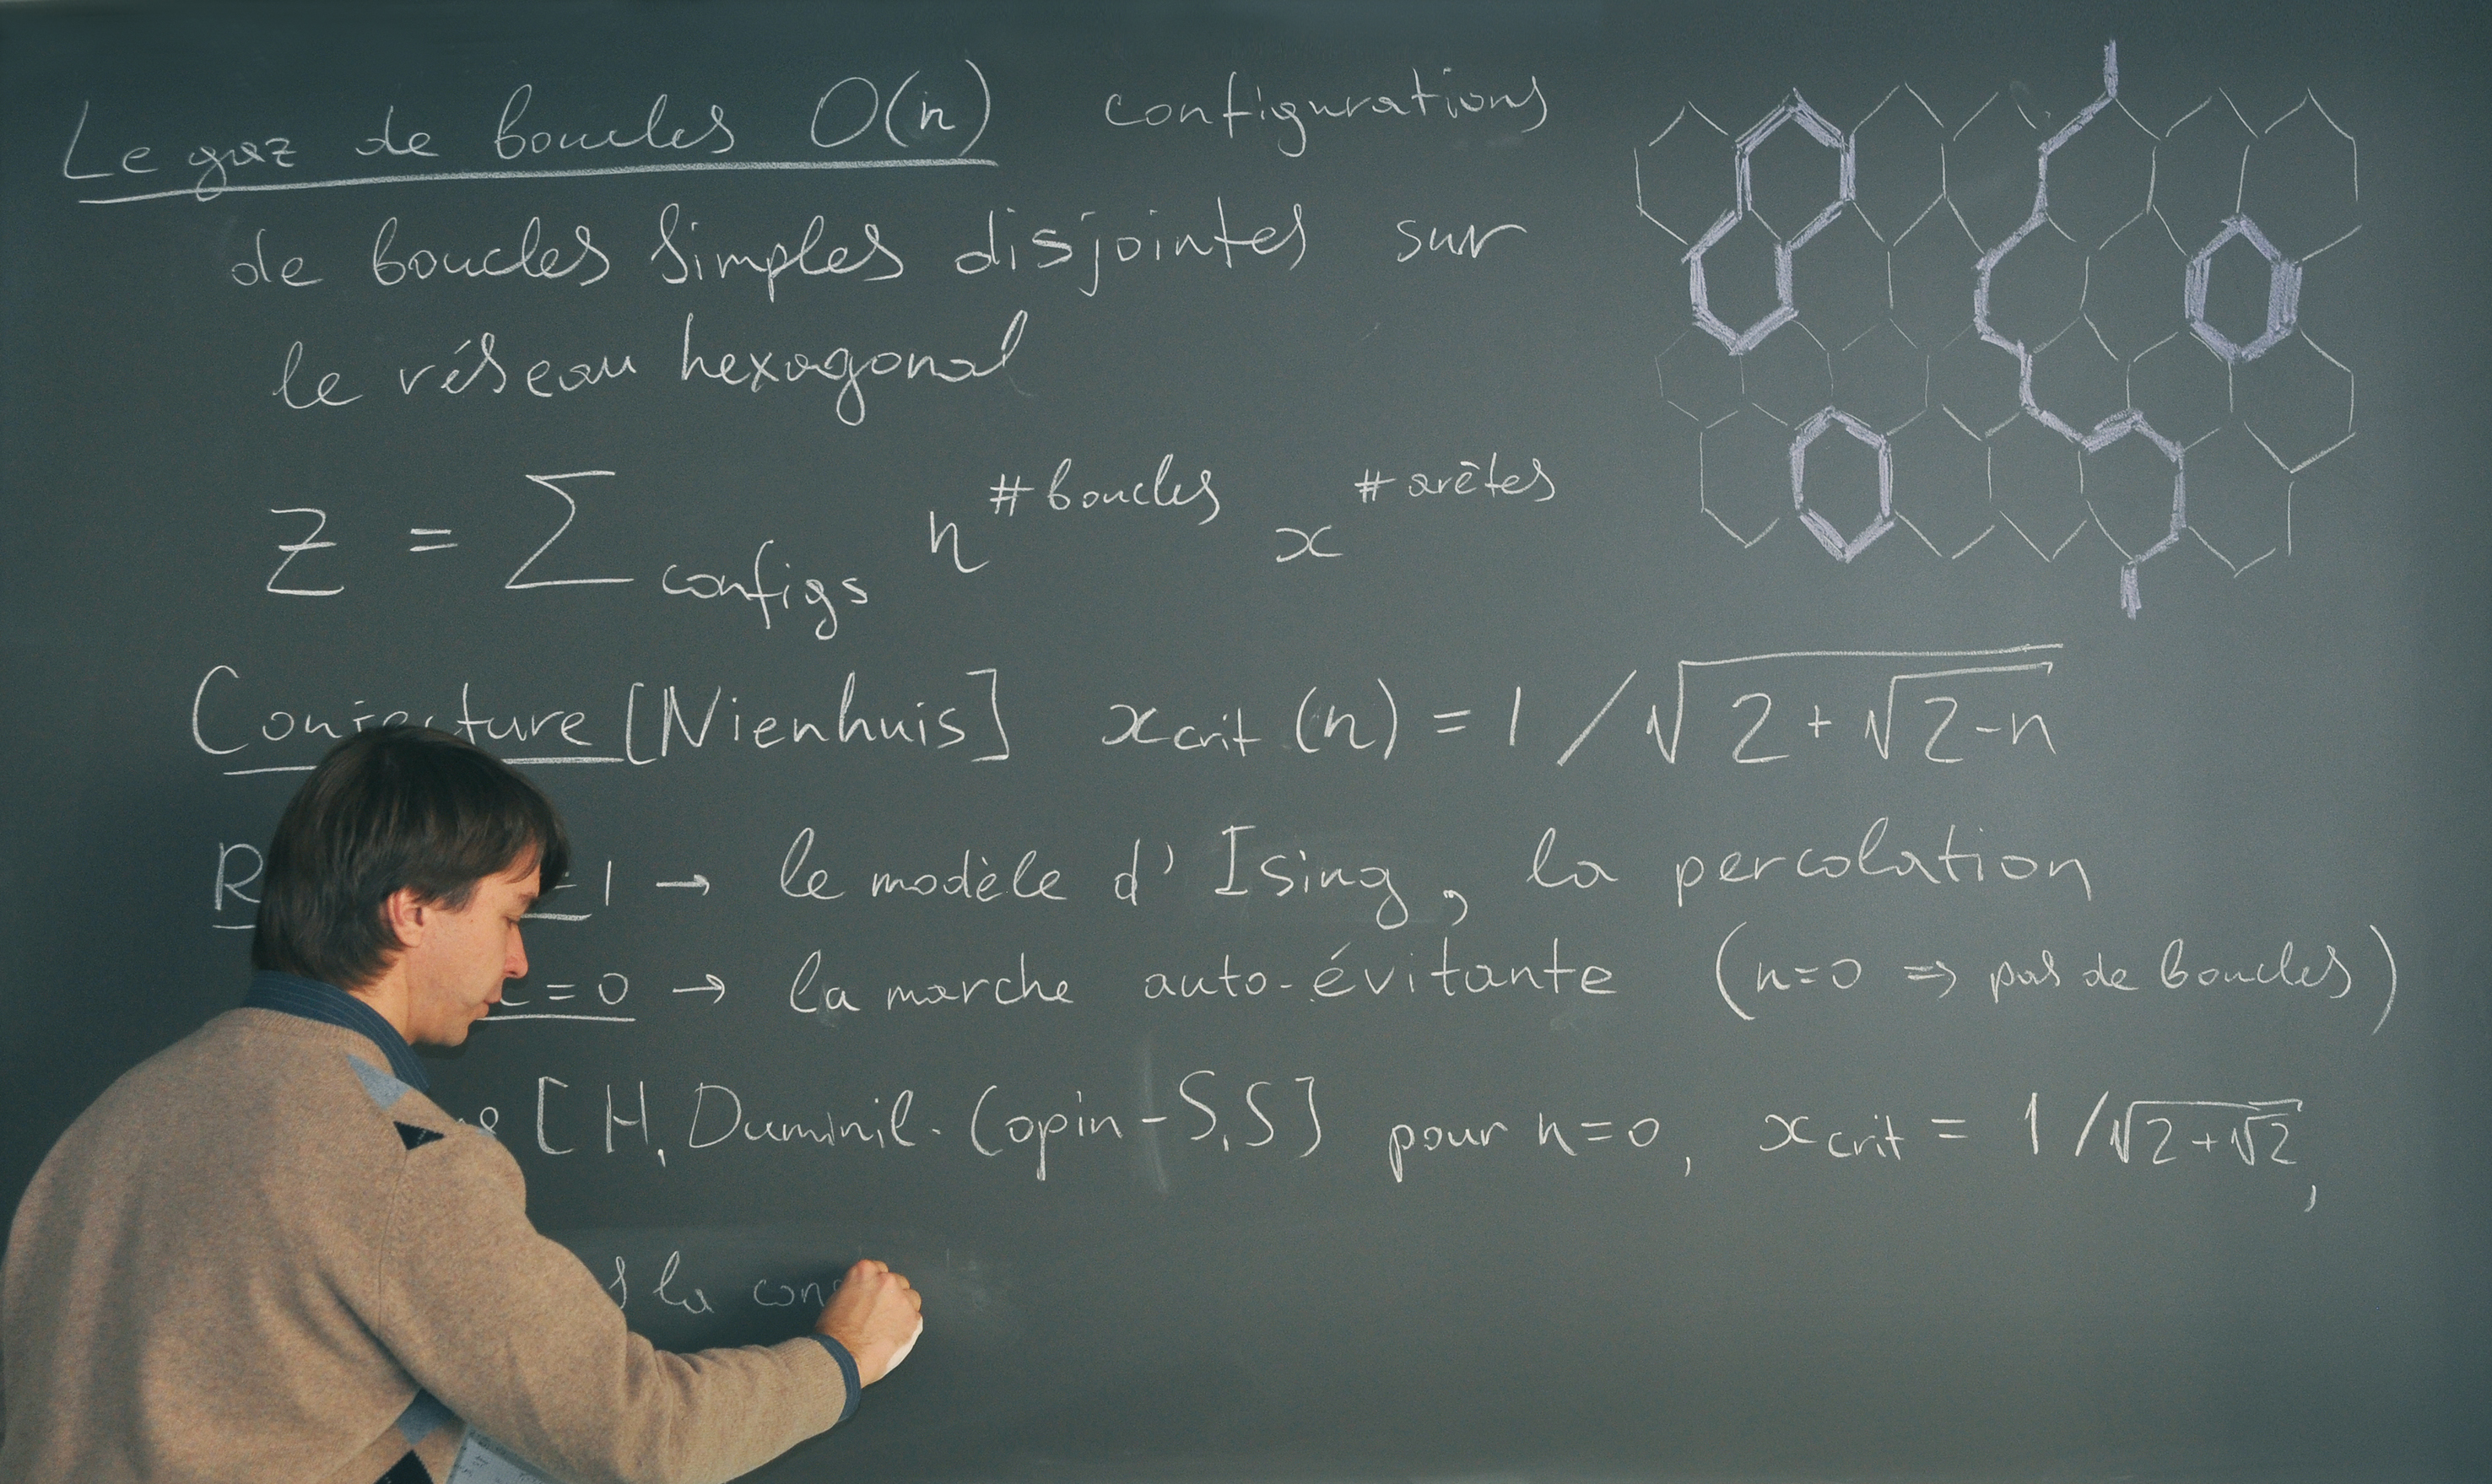 Le gaz de boucles O(n) configurations
de boucles simples disjointes sur
le réseau hexagonal
Z = Σ configs n^#boucles x^#arêtes
Conjecture [Nienhuis] x crit (n) = 1 / √(2 + √(2-n))
=1 → le modèle d'Ising, la percolation
=0 → la marche auto-évitante (n=0 ⇒ pas de boucles)
[H. Duminil-Copin - S.S] pour n=0, x crit = 1 / √(2+√2),
la